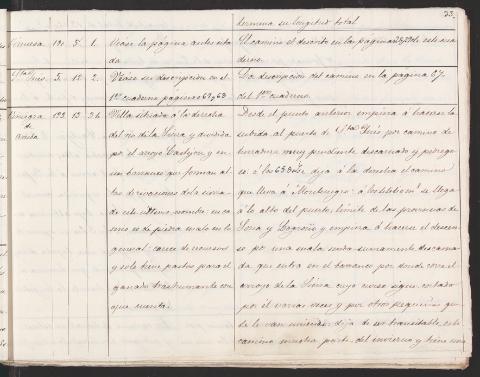 33.
termina su longitud total
Vinuesa 120. 5. 1. Véase la página antes cita
da.
El camino el descrito en las páginas de este cua
derno.
Sta Inés. 3. 12. 2. Véase su descripcion en el
1er cuaderno páginas 62 y 63
La descripcion del camino en la página 27
del 1er cuaderno.
de
Villa situada á la derecha
del rio de la y dividida
por el arroyo y en
un barranco que forman al
tas derivaciones de la sierra
de este último nombre: su ca
serio es de piedra malo en lo
general: carece de recursos
y solo tiene pastos para el
ganado trashumante con
que cuenta.
Desde el punto anterior empieza á hacerse la
subida al puerto de Sta Inés por camino de
herradura muy pendiente descarnado y pedrego
so: á los se deja á la derecha el camino
que lleva á Montenegro: á los se llega
á lo alto del puerto, límite de las provincias de
Soria y Logroño y empieza á hacerse el descen
so por una mala senda sumamente descarna
da que entra en el barranco por donde corre el
arroyo de la cuyo curso sigue cortado
por él varias veces y por otros pequeños que
se le van uniendo: deja de ser transitable este
camino mucha parte del invierno y tiene